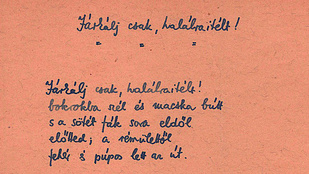 Járkálj csak, halálraitélt!
" " "
Járkálj csak, halálraitélt!
bokrokba szél és macska bútt
s a sötét fák sora eldől
előtted; a rémülettől
fehér s púpos lett az út.